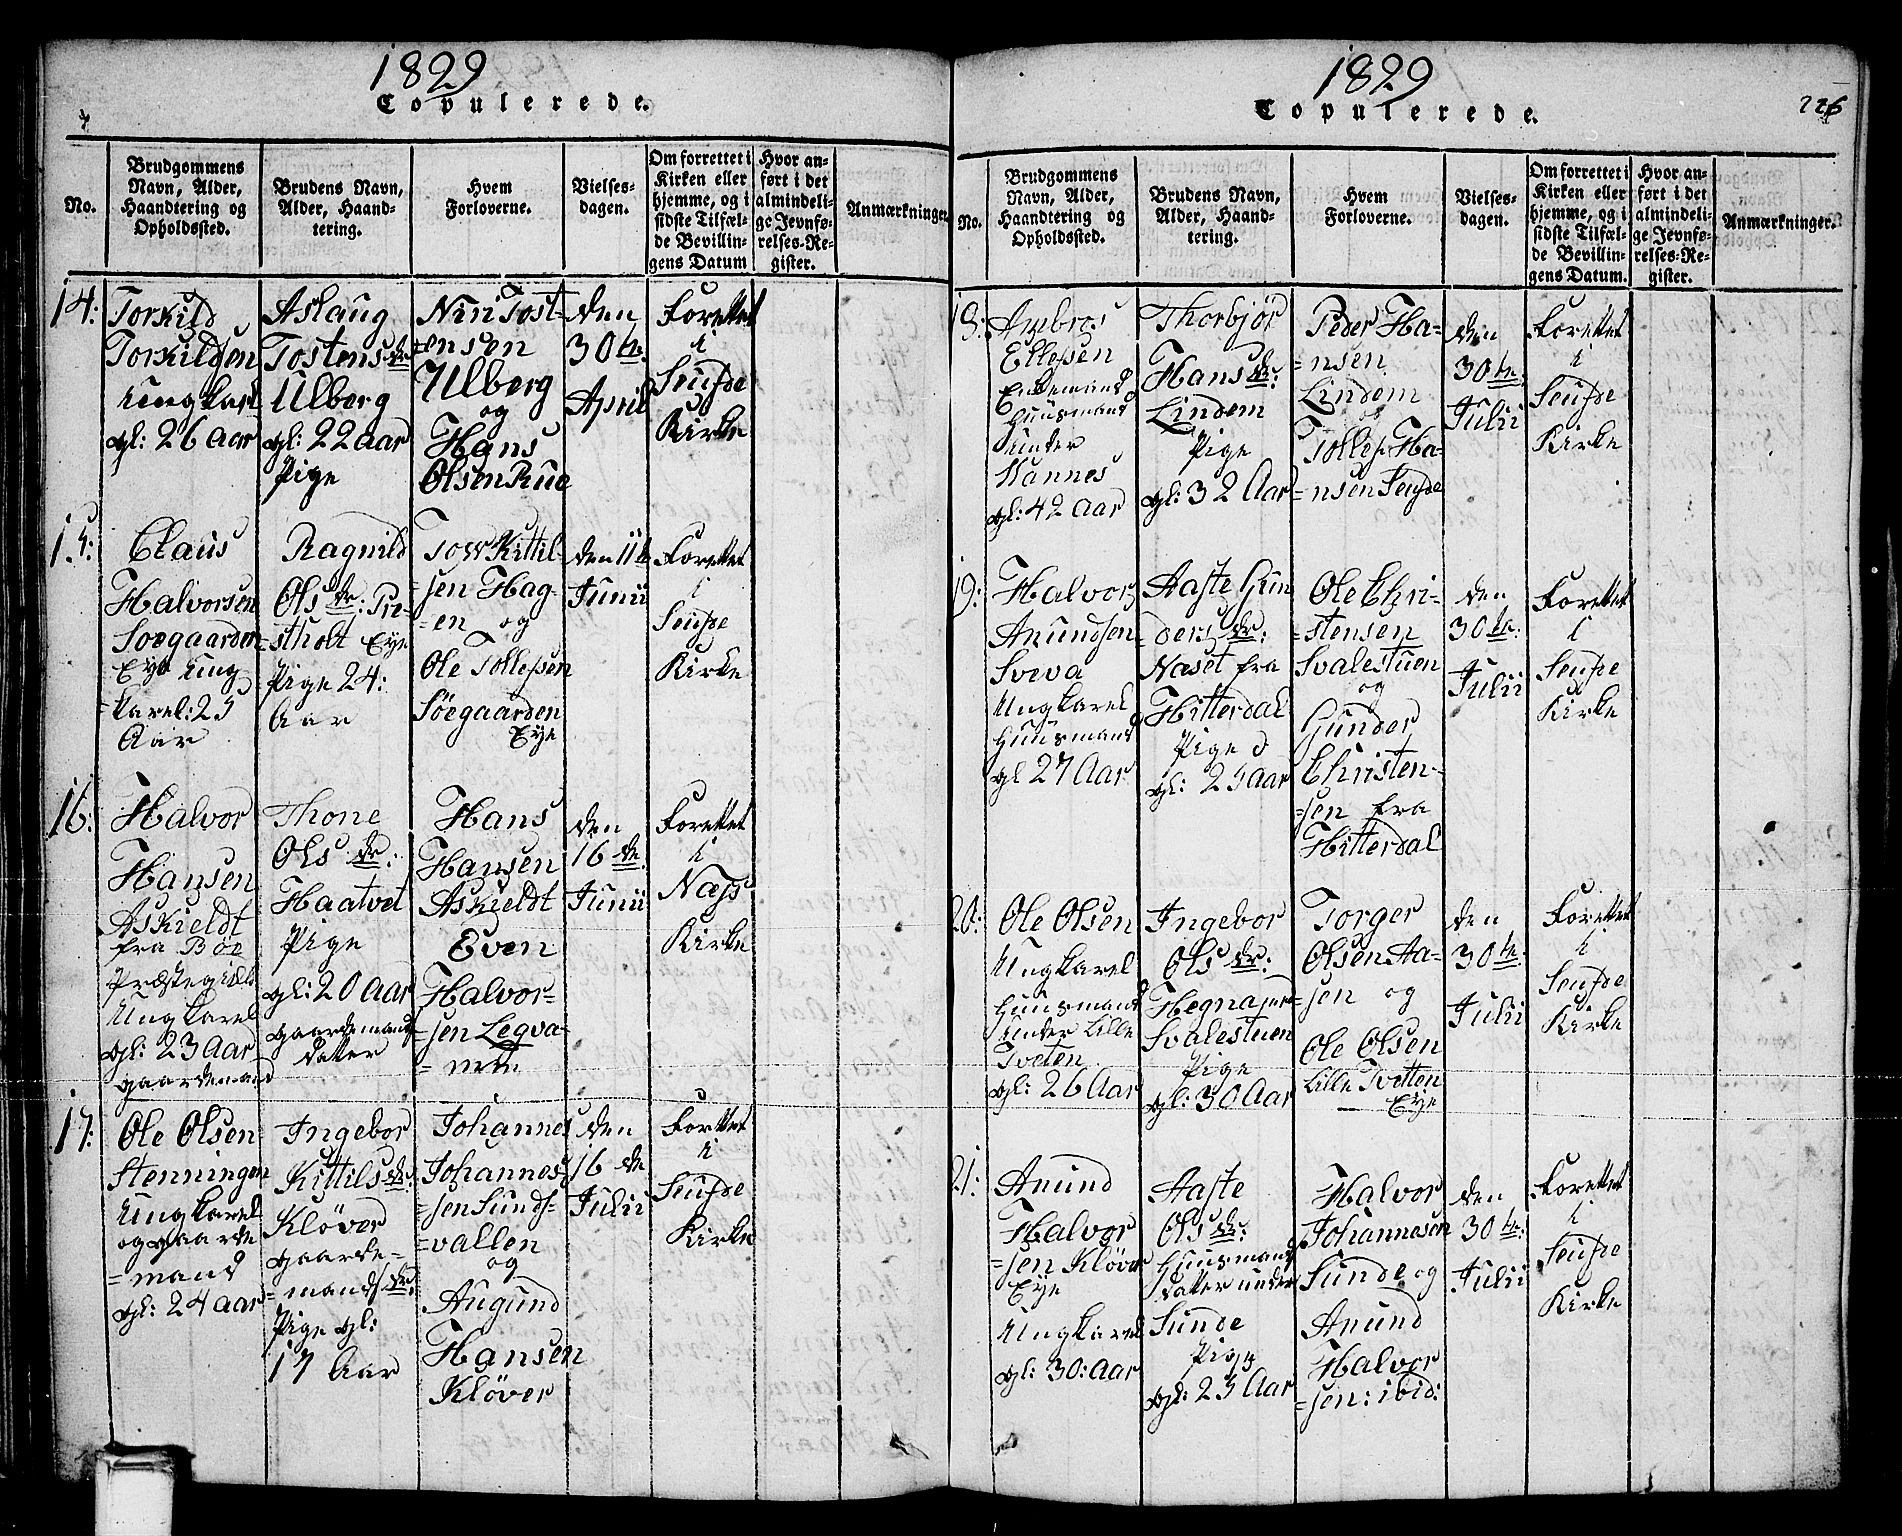 1829
Copulerede.
No.
Brudgommens
Navn, Alder,
Haandtering og
Opholdssted.
Brudens Navn,
Alder, Haand-
tering.
Hvem
Forloverne.
Vielses-
dagen.
Om forrettet i
Kirken eller
hjemme, og i
sidste Tilfæl-
de Bevillin-
gens Datum
Hvor an-
ført i det
almindeli-
ge Jevnfø-
relses-Re-
gister.
Anmærkninger.
14:
Torkild
Torkildsen
Ungkarl
gl: 26 Aar
Aslaug
Tostensdr
Ulberg
gl: 22 aar
Pige
Niri Tost-
ensen
Ulberg
og
Hans
Olsen Rue
den
30te
April
Forettet
i
Seufde
Kirke
15:
Claus
Halvorsen
Soegaarden
Eye Ung
karel: 25
Aar
Ragnild
Olsdr: Pre-
stholt Eye
Pige 24:
Aar
Tow Kittil-
sen Hag-
=en og
Ole Tollefsen
Söegaarden
Eye
den 11te
Junii
Forettet
i
Seufde
Kirke
16:
Halvor
Hansen
Askieldt
fra Böe
Præstegield
Ungkarel
gl: 23 Aar
gaardemand
Thone
Ols dr:
Haatvet
Pige
gl: 20 Aar
gaardemands
datter
Hans
Hansen
Askieldt
Even
Halvor-
sen Legva-
den
16de
Junii
Forettet
i
Næss
Kirke
17:
Ole Olsen
Stenningen
Ungkarel
og gaarde
=mand
gl: 24 aar
Ingebor
Kittilsdr:
Klöver
gaarde-
=mands dr:
Pige gl:
17 Aar
Johannes
Johannes
=sen Sunds-
=vallen
og
Augund
Hansen
Klöver
den
16 de
Julii
Forttet
i
Seufde
Kirke
1829
Copulerede.
226
No.
Brudgommens
Navn, Alder,
Haandtering og
Opholdssted.
Brudens Navn,
Alder, Haand-
tering.
Hvem
Forloverne.
Vielses-
dagen.
Om forrettet i
Kirken eller
hjemme, og i
sidste Tilfæl-
de Bevillin-
gens Datum.
Hvor an-
ført i det
almindeli-
ge Jevnfø-
relses-Re-
gister.
Anmærkninger.
18:
Ambros
Ellefsen
Enkemand
Huusmand
under
Nannes
gl: 42 aar
Thorbjör
Hansdr:
Lindem
Pige
gl: 32 Aar
Peder Ha-
=nsen
Lindem
og
Tollef Ha-
=nsen Seufde
den
30te
Julii
Forettet
i
Seufde
Kirke
19:
Halvor
Anundsen
Sveva
Ungkarel
Huusmand
gl 27 Aar
Aaste Gun
=ders dr:
Naset fra
Hitterdal
Pige
gl: 25 aar
Ole Chri-
=stensen
Svalestuen
og
Gunder
Christen-
=sen fra
Hitterdal
den
30te:
Julii
Forettet
i
Seufde
Kirke
20:
Ole Olsen
Ungkarel
Huusmand
under Lille
Tveten
gl: 26 Aar
Ingebor
Ols dr:
Hegna
Svalestuen
Pige
gl: 30 Aar
Torger
Olsen Aa-
=sen og
Ole Olsen
Lille Tvetten
Eye
den
30te:
Julii
Forettet
i
Seufde
Kirke
21:
Anund
Halvor
=sen Klöver
Eye
Ungkarel
gl: 30: Aar
Aaste
Ols dr:
Huusmands
datter under
Sunde
Pige
gl: 25 Aar
Halvor
Johannesen
Sunde og
Anund
Halvor
=sen: ibid:
den
30te:
Julii
Forettet
i
Seufde
Kirke